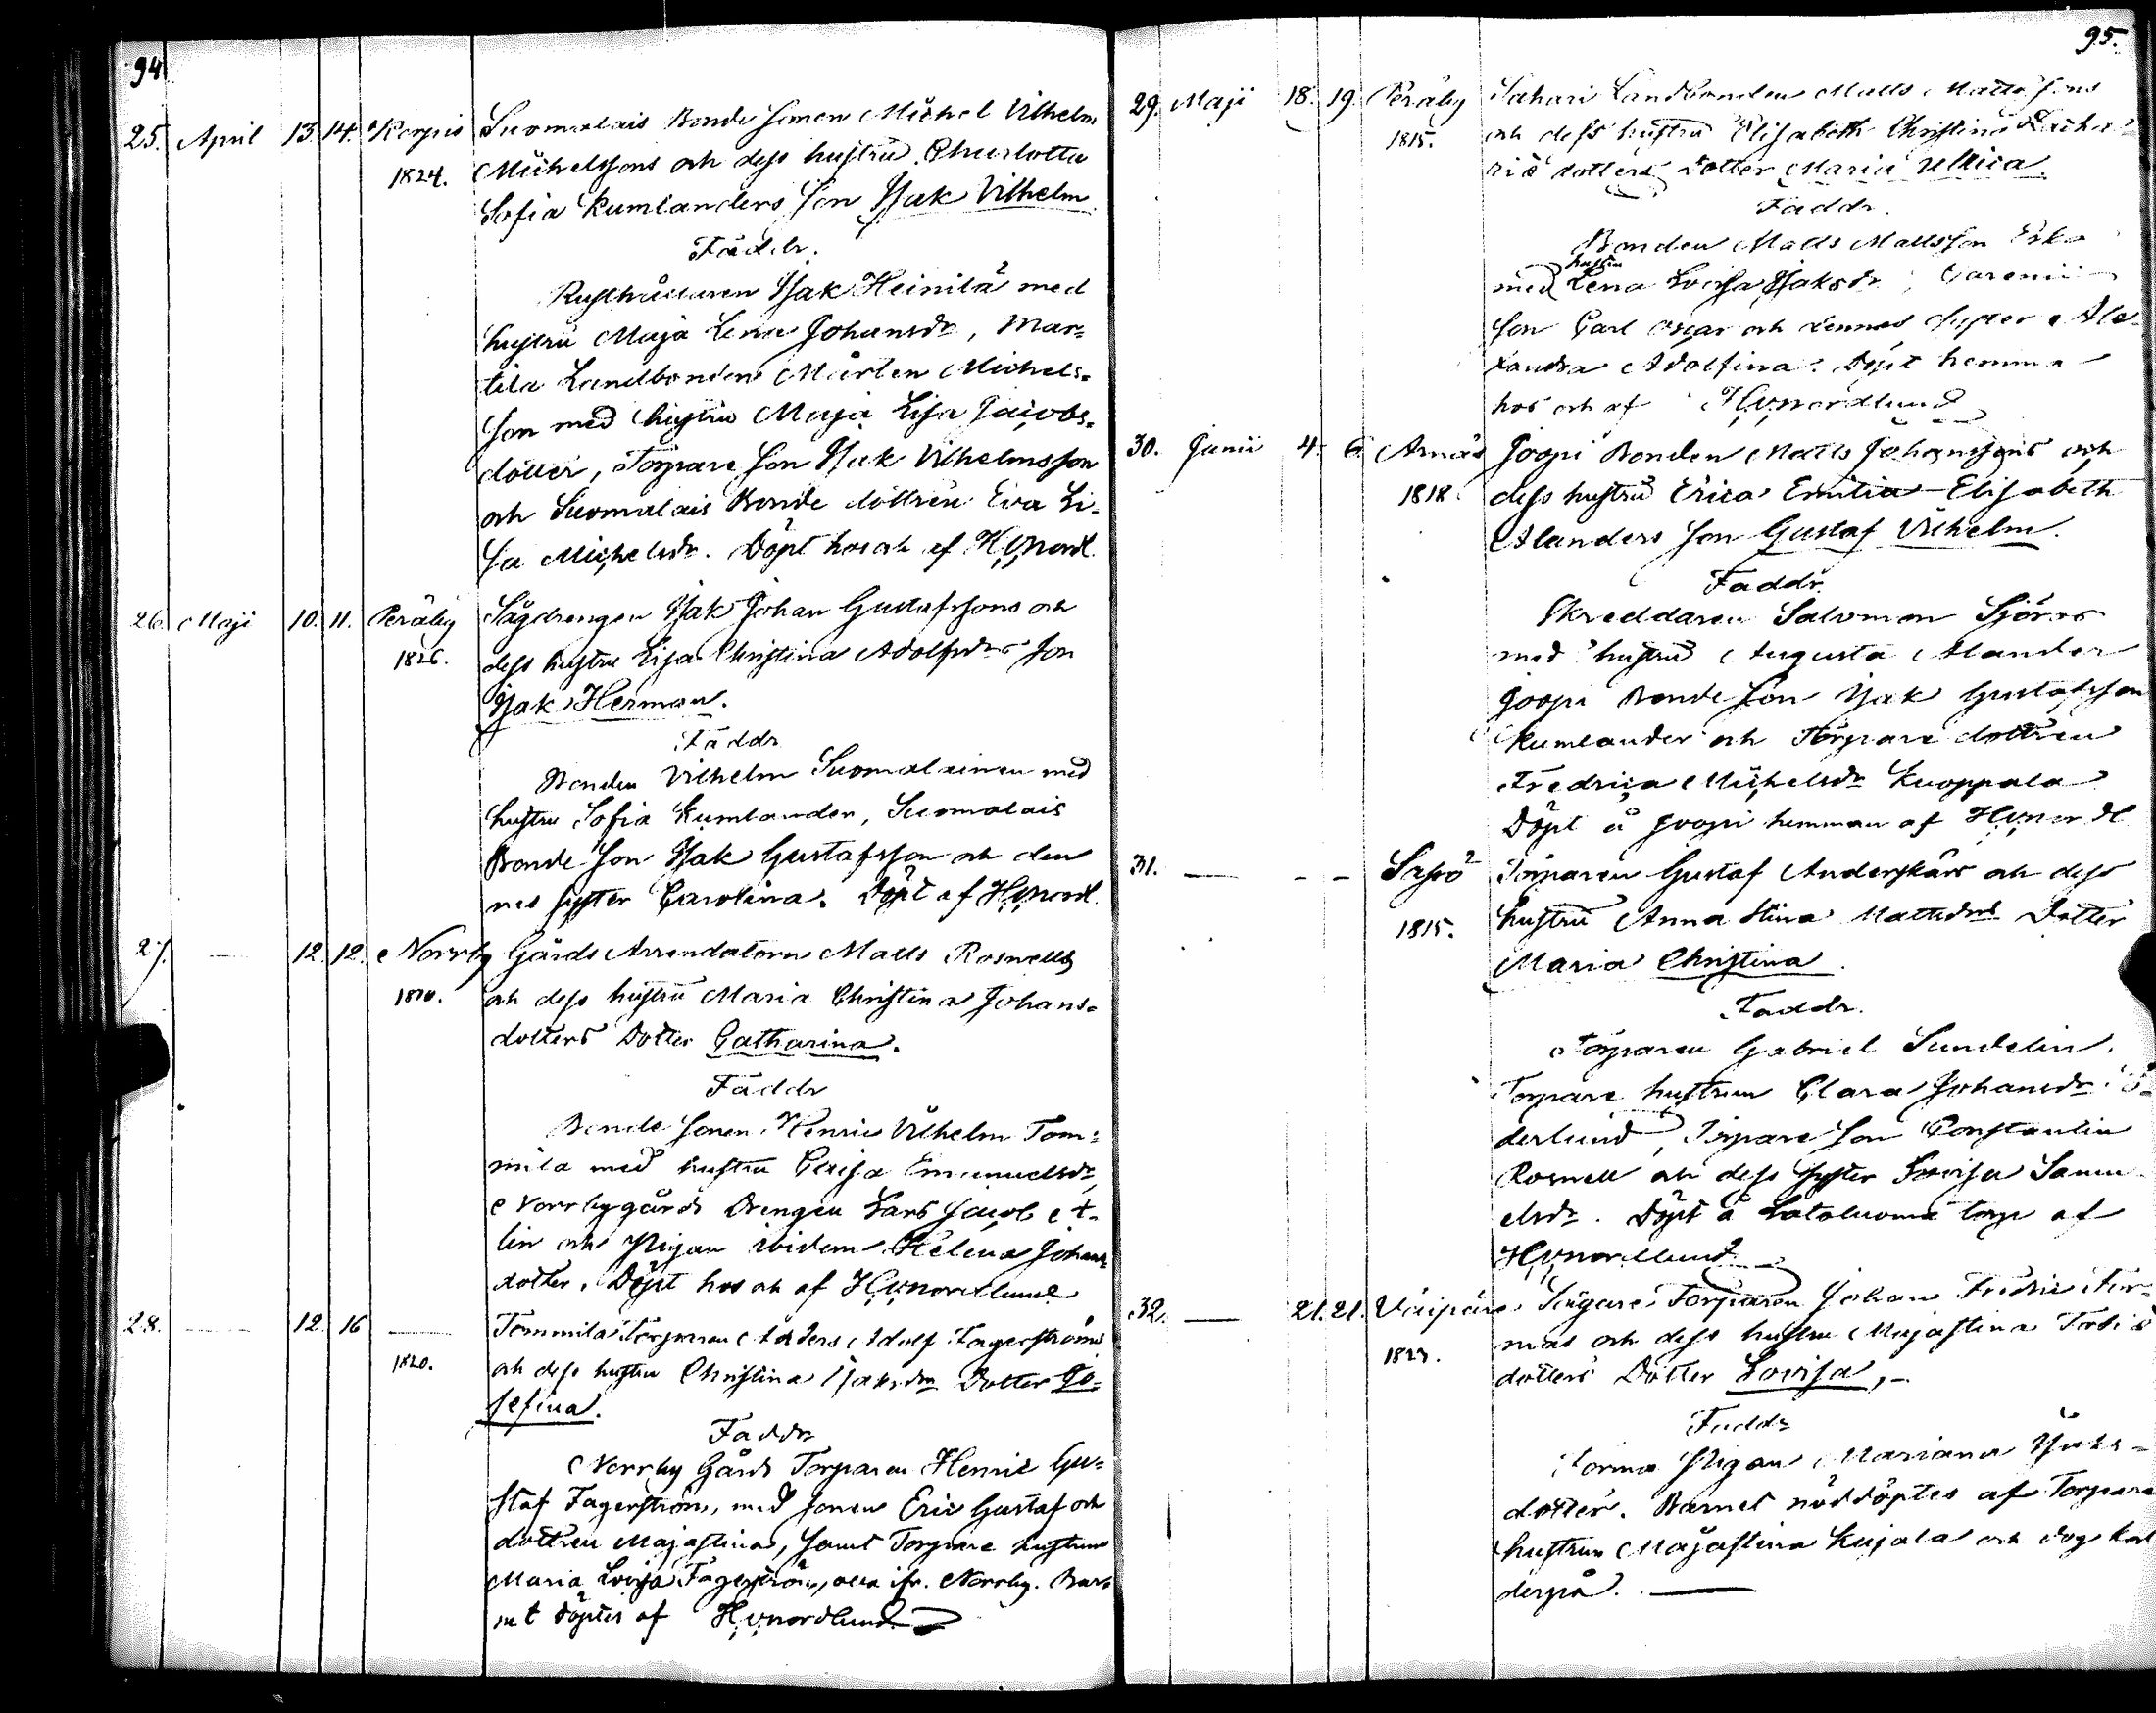 94
25. April 13. 14. Korpis Suomalais Bonde sonen Michel Vilhelm
1824. Michelssons och dess hustru Charlotta
Sofia Kumlanders Son Isak Vilhelm
Faddr.
Rusthållaren Isak Heinilä med
hustru Maja Lena Johansdr, Mar=
tila Landbonden Mårten Michels=
son med hustru Maja Lisa Jacobs=
dotter, Torpare son Isak Vilhelmsson
och Suomalais Bonde dottren Eva Li=
sa Michelsdr. Döpt hos och af HGNordl.
26. Maji 10. 11. Peräby Sågdrengen Isak Johan Gustafssons och
1826. dess hustru Lisa Christina Adolfsdrs Son
Isak Herman.
Faddr
Bonden Vilhelm Suomalainen med
hustru Sofia Kumlander, Suomalais
Bonde Son Isak Gustafsson och den
nes syster Carolina. Döpt af HGNordl.
27. — 12. 12. Norrby Gårds Arrendatoren Matts Rosnells
1810. och dess hustru Maria Christina Johans=
dotters Dotter Catharina.
Faddr
Bonde Sonen Henric Vilhelm Tom=
mila med hustru Caisa Emanuelsdr,
Norrbygårds Drengen Lars Jacob At=
lin och Pigan ibidem Helena Johans
dotter. Döpt hos och af HGNordlund
28. — 12. 16 — Tommila Torparen Anders Adolf Fagerströms
1820. och dess hustru Christina Isaksdrs Dotter Jo=
sefina.
Faddr
Norrby Gårds Torparen Henric Gu=
staf Fagerström, med sonen Eric Gustaf och
dottren Majastina, samt Torpare hustrun
Maria Lovisa Fagerström, alla ifr. Norrby. Bar
net döptes af HGNordlund
95.
29. Maji 18. 19. Peräby Sahari Landbonden Matts Mattssons
1815. och dess hustru Elisabeth Christina Zacha=
riæ dotters Dotter Maria Ulrica.
Faddr.
Bonden Matts Mattsson Erko
hustru
med Lena Lovisa Isaksdr,
son Carl Oscar och dennes syster Ale=
xandra Adolfina. Döpt hemma
hos och af HGNordlund
30. Junii 4. 6. Arnäs Joopi Bonden Matts Johanssons och
1818 dess hustru Erica Emilia Elisabeth
Alanders Son Gustaf Vilhelm.
Faddr.
Skreddaren Salomon Sjöros
med hustru Augusta Alander
Joopi Bonde Son Isak Gustafsson
Kumlander och Torpare dottren
Fredrica Michelsdr Kuoppala
Döpt å Joopi hemman af HGNordl
31. — — — Saso Torparen Gustaf Anderskärs och dess
1815. hustru Anna Stina Mattsdrs Dotter
Maria Christina.
Faddr.
Torparen Gabriel Sundelin.
Torpare hustrun Clara Johansdr Sö=
derlund, Torpare Son Constantin
Rosnell och dess syster Lovisa Samu
elsdr. Döpt å Latoluoma torp af
HGNordlund
32. — 21. 21. Vaipare Sågare Torparen Johan Fredric For=
1823. mas och dess hustru Majastina Tobiæ
dotters Dotter Lovisa,
Faddr
Torma Pigan Mariana Isaks=
dotter. Barnet nöddöptes af Torpare
hustrun Majastina Kujala och dog kort
derpå.